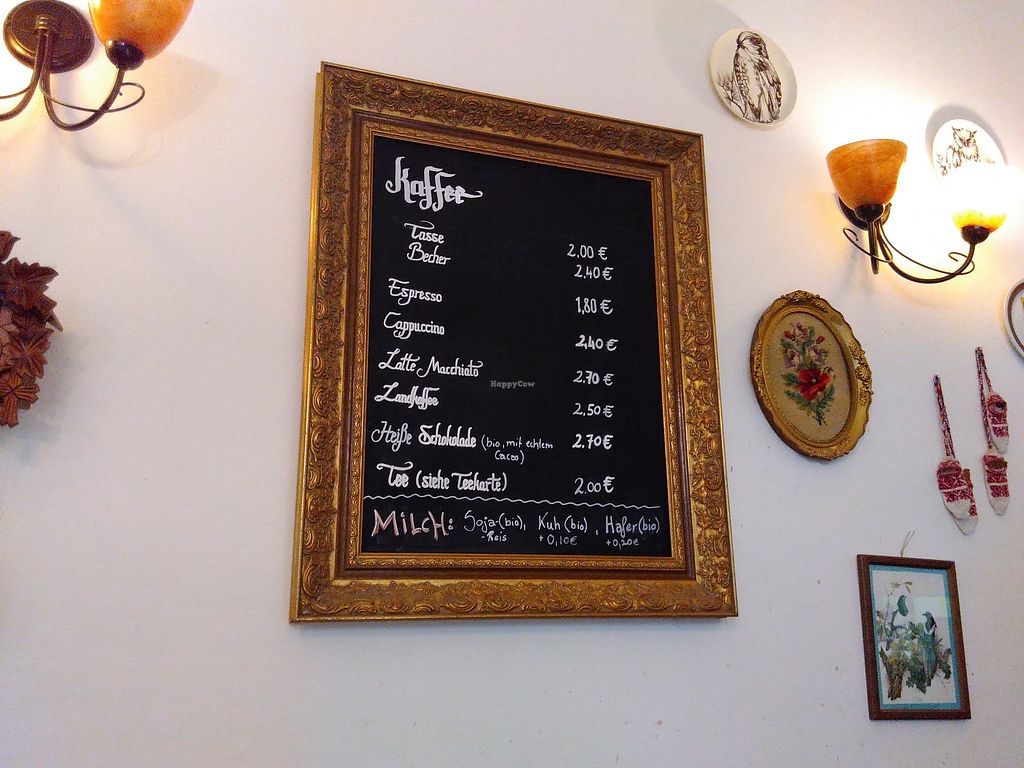 Kaffee
Tasse 2.00 €
Becher 2,40 €
Espresso 1,80 €
Cappuccino 2,40 €
Latte Macchiato 2.70 €
HappyCow
Landkaffee 2.50 €
Heiße Schokolade (bio, mit echtem 2.70 €
Cacao)
Tee (siehe Teekarte) 2.00 €
MiLcH: Soja-(bio), Kuh (bio), Hafer (bio)
-Reis + 0,10€ +0,20€